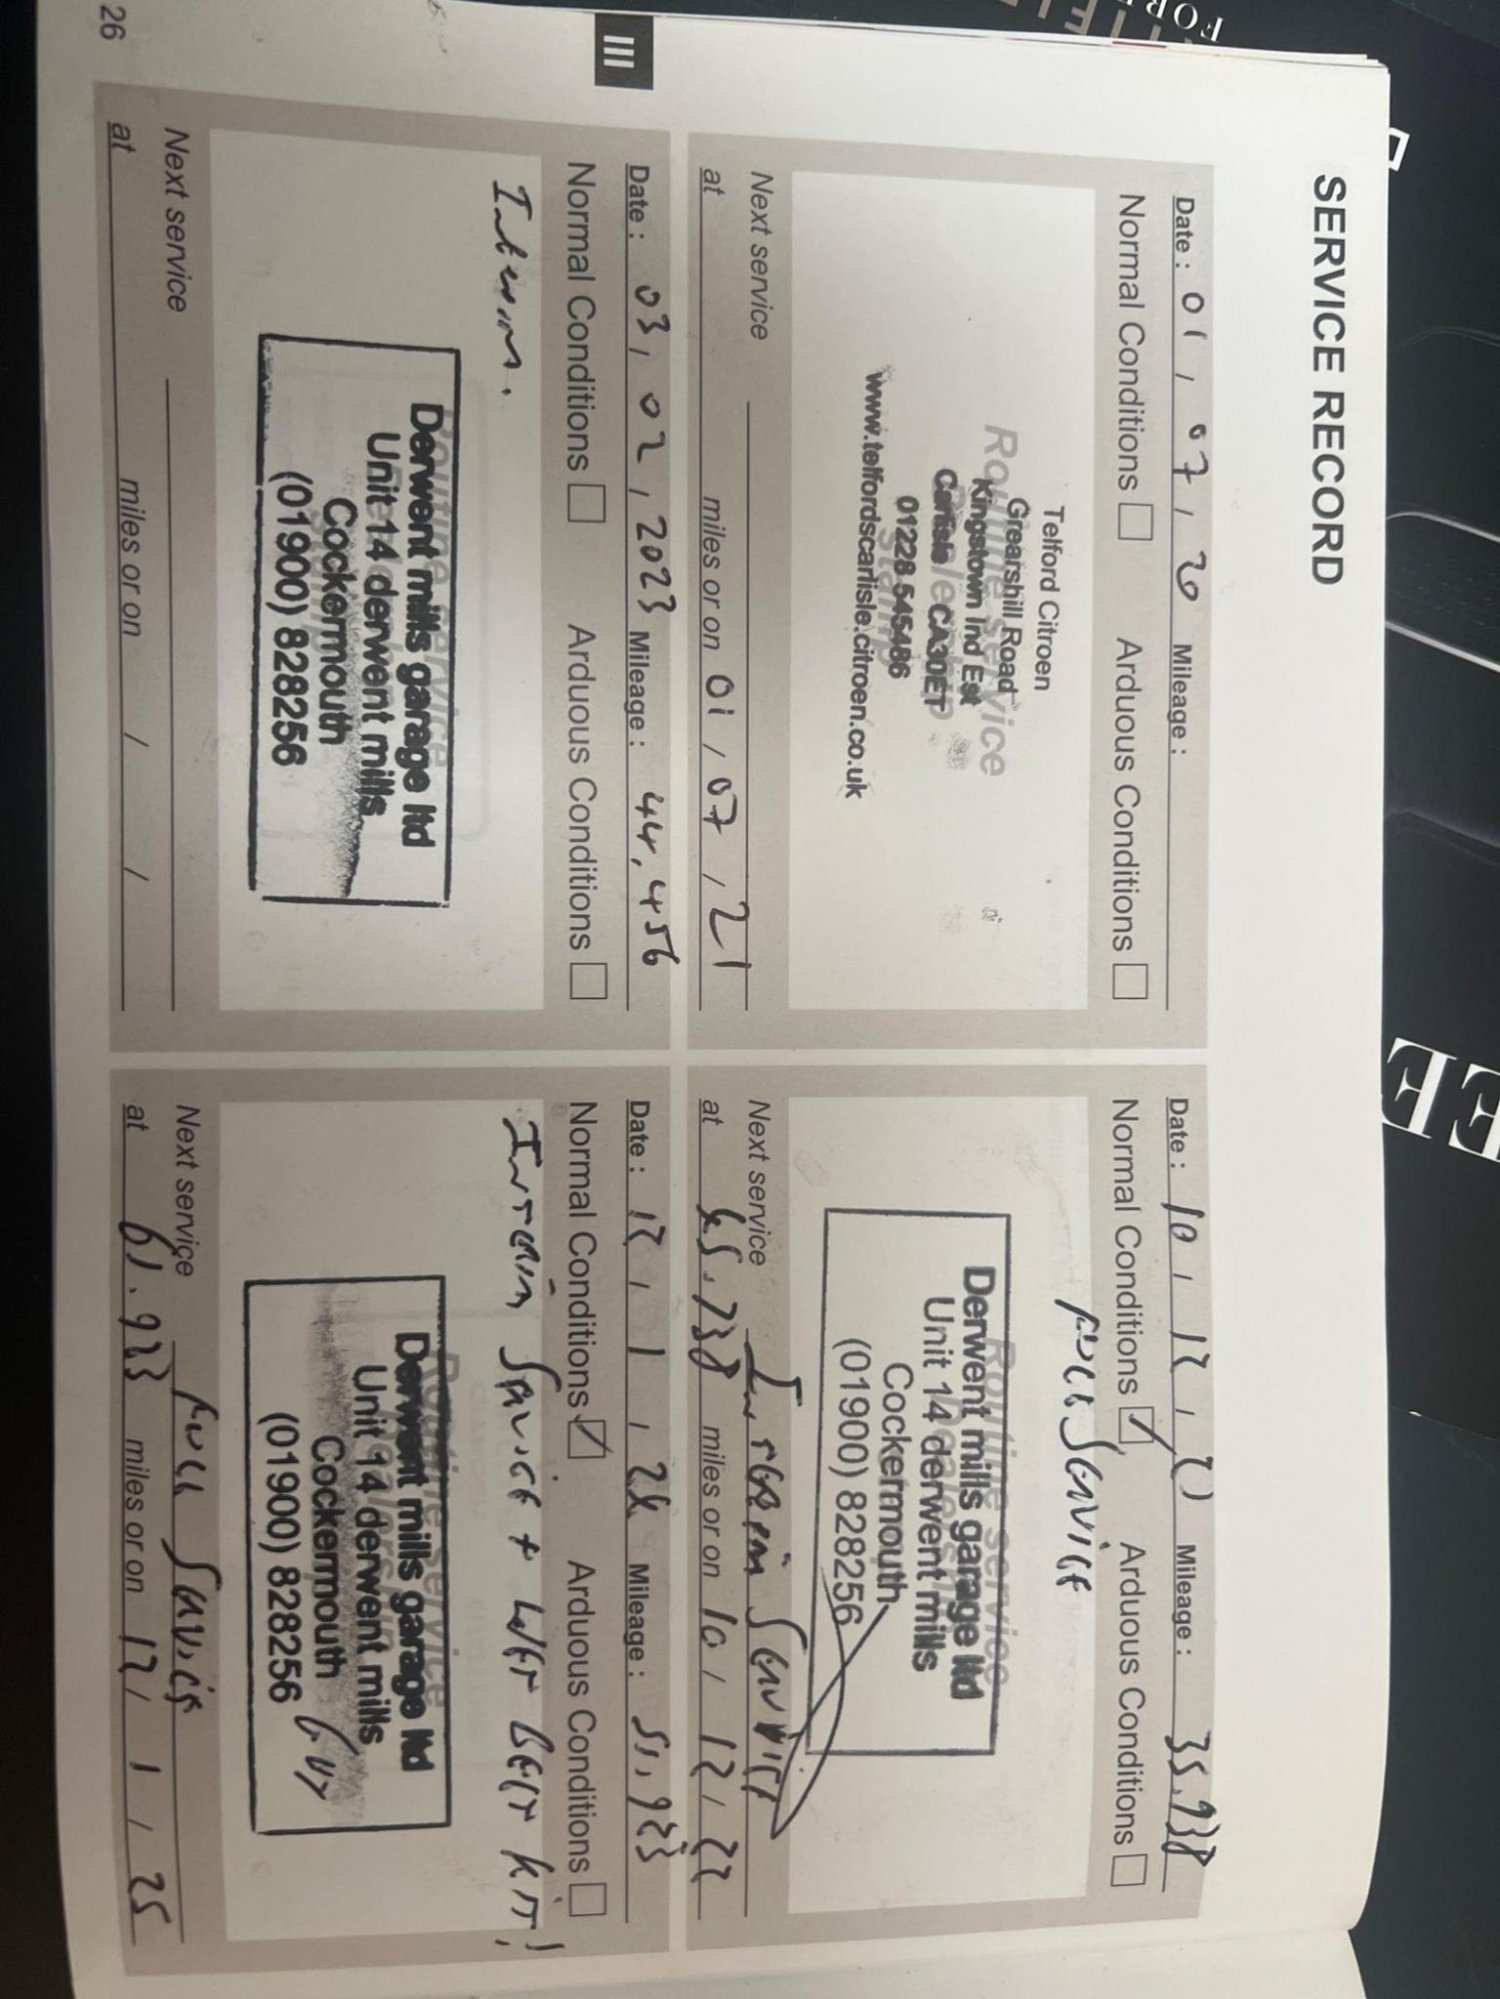 SERVICE RECORD
Date : 01 / 07 / 20 Mileage :
Normal Conditions Arduous Conditions
Routine service
Telford Citroen
Grearshill Road
Kingstown Ind Est
Carlisle CA30ET
01228 545486
www.telfordscarlisle.citroen.co.uk
Next service
at miles or on 01 / 07 / 21
Date : 10 / 12 / 21 Mileage : 35.938
Normal Conditions Arduous Conditions
Full Service
Routine service
Derwent mills garage ltd
Unit 14 derwent mills
Cockermouth
(01900) 828256
Next service Interim Service
at 45.938 miles or on 10 / 12 / 22
Date : 03 / 02 / 2023 Mileage : 44,456
Normal Conditions Arduous Conditions
Interim.
Derwent mills garage ltd
Unit 14 derwent mills
Cockermouth
(01900) 828256
Next service
at miles or on / /
Date : 12 / 1 / 24 Mileage : 51,923
Normal Conditions Arduous Conditions
Interim Service + Wet Belt Kit!
Derwent mills garage ltd
Unit 14 derwent mills
Cockermouth
(01900) 828256
Next service Full Service
at 61.923 miles or on 12 / 1 / 25
III
26